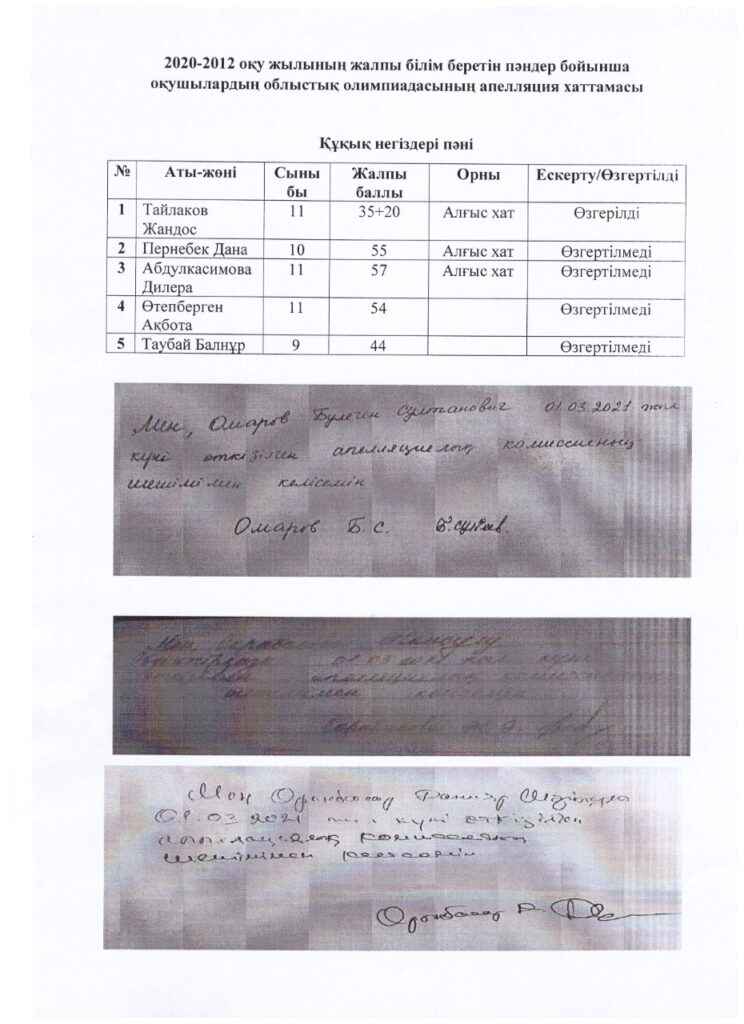 2020-2012 оқу жылының жалпы білім беретін пәндер бойынша
оқушылардың облыстық олимпиадасының апелляция хаттамасы
Құқық негіздері пәні
№ Аты-жөні Сыны Жалпы Орны Ескерту/Өзгертілді
бы баллы
1 Тайлаков 11 35+20 Алғыс хат Өзгерілді
Жандос
2 Пернебек Дана 10 55 Алғыс хат Өзгертілмеді
3 Абдулкасимова 11 57 Алғыс хат Өзгертілмеді
Дилера
4 Өтепберген 11 54 Өзгертілмеді
Ақбота
5 Таубай Балнұр 9 44 Өзгертілмеді
Мен, Омаров Султанович 01.03.2021 жыл
күні өткізілген апелляциялық комиссияның
шешімімен келісемін
Омаров Б.С.
Мен,
01 03 2021 күні
келісемін
Мен Орынбасар
01.03 2021 күні өткізілген
апелляциялық комиссияның
шешімімен
Орынбасар